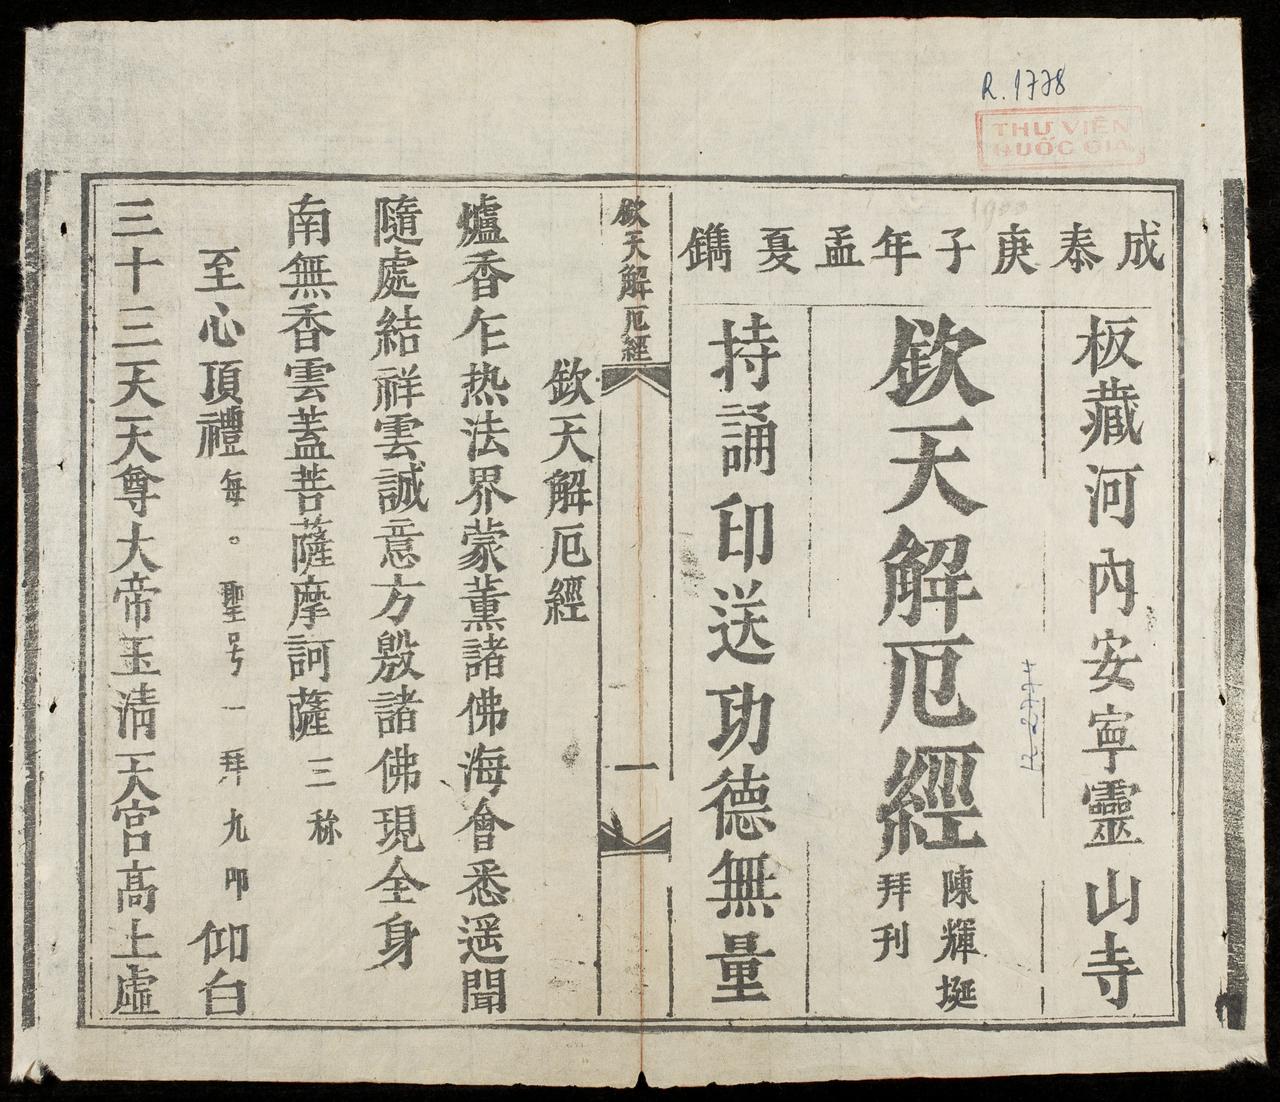 R.1778
THƯ VIỆN
QUỐC GIA
1900
成泰庚子年孟夏鐫
板藏河內安寧靈山寺
欽天解厄經
陳輝埏
拜刊
持誦印送功德無量
欽天解厄經
一
欽天解厄經
爐香乍热法界蒙薰諸佛海會悉遥聞
隨處結祥雲誠意方殷諸佛現全身
南無香雲蓋菩薩摩訶薩三称
至心頂禮每。聖号一拜九叩仰白
三十三天天尊大帝玉清天宮高上虛